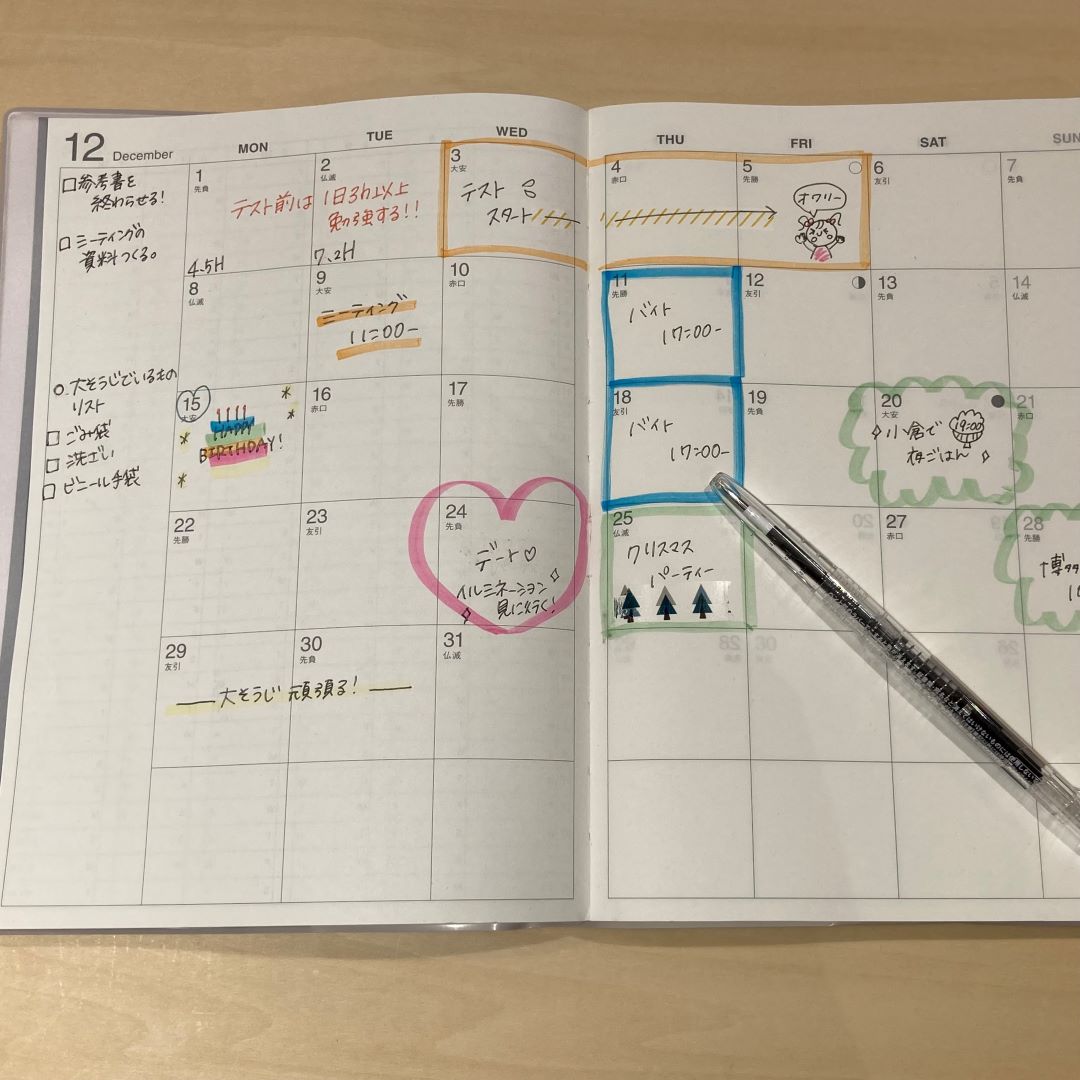 12 December
MON TUE WED THU FRI SAT SUN
□参考書を
終わらせる！
□ミーティングの
資料つくる。
1
先負
4.5H
2
仏滅
テスト前は1日3h以上
勉強する！！
7.2H
3
大安
テスト
スタート
4
赤口
5
先勝
オワリー
6
友引
7
先負
8
仏滅
9
大安
ミーティング
11:00-
10
赤口
11
先勝
バイト
17:00-
12
友引
13
先負
14
仏滅
○大そうじでいるもの
リスト
□ごみ袋
□洗ざい
□ビニール手袋
15
大安
HAPPY
BIRTHDAY!
16
赤口
17
先勝
18
友引
バイト
17:00-
19
先負
20
大安
小倉で
夜ごはん
19:00
21
赤口
22
先勝
23
友引
24
先負
デート♡
イルミネーション
見に行く！
25
仏滅
クリスマス
パーティー
27
赤口
28
先勝
博多
29
友引
30
先負
大そうじ頑張る！
31
仏滅